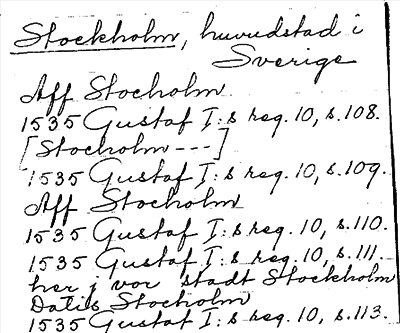 Stockholm, huvudstad i
Sverige
Aff Stocholm
1535 Gustaf I:s reg. 10, s. 108.
[Stocholm ---]
1535 Gustaf I:s reg. 10, s. 109.
Aff Stocholm
1535 Gustaf I:s reg. 10, s. 110.
1535 Gustaf I:s reg. 10, s. 111.
her j vor stadt Stockholm
Datis Stocholm
1535 Gustaf I:s reg. 10, s. 113.